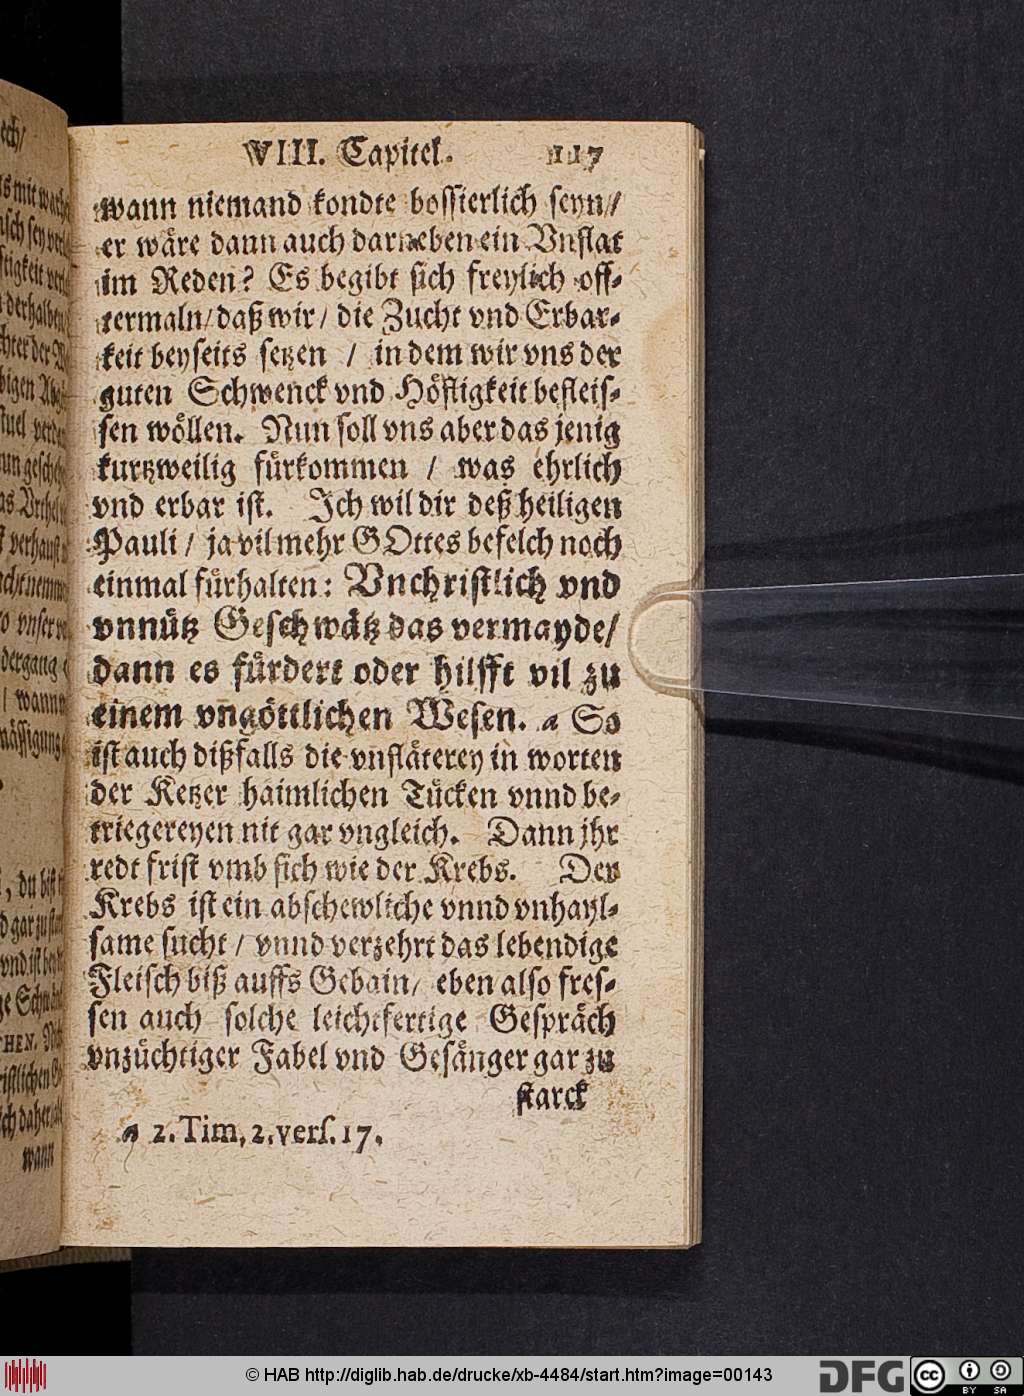 VIII. Capitel. 117
wann niemand kondte bossierlich seyn/
er wäre dann auch darneben ein Vnflat
im Reden? Es begibt sich freylich off-
termaln/ daß wir/ die Zucht vnd Erbar-
keit beyseits setzen / in dem wir vns der
guten Schwenck vnd Höfligkeit befleis-
sen wöllen. Nun soll vns aber das jenig
kurtzweilig fürkommen / was ehrlich
vnd erbar ist. Ich wil dir deß heiligen
Pauli / ja vil mehr GOttes befelch noch
einmal fürhalten: Vnchristlich vnd
vnnütz Geschwätz das vermayde/
dann es fürdert oder hilfft vil zu
einem vngöttlichen Wesen. a So
ist auch dißfalls die vnfläterey in worten
der Ketzer haimlichen Tücken vnnd be-
triegereyen nit gar vngleich. Dann jhr
redt frist vmb sich wie der Krebs. Der
Krebs ist ein abschewliche vnnd vnhayl-
same sucht / vnnd verzehrt das lebendige
Fleisch biß auffs Gebain/ eben also fres-
sen auch solche leichtfertige Gespräch
vnzüchtiger Fabel vnd Gesänger gar zu
starck
a 2. Tim, 2. vers. 17.
© HAB http://diglib.hab.de/drucke/xb-4484/start.htm?image=00143
DFG
cc BY SA